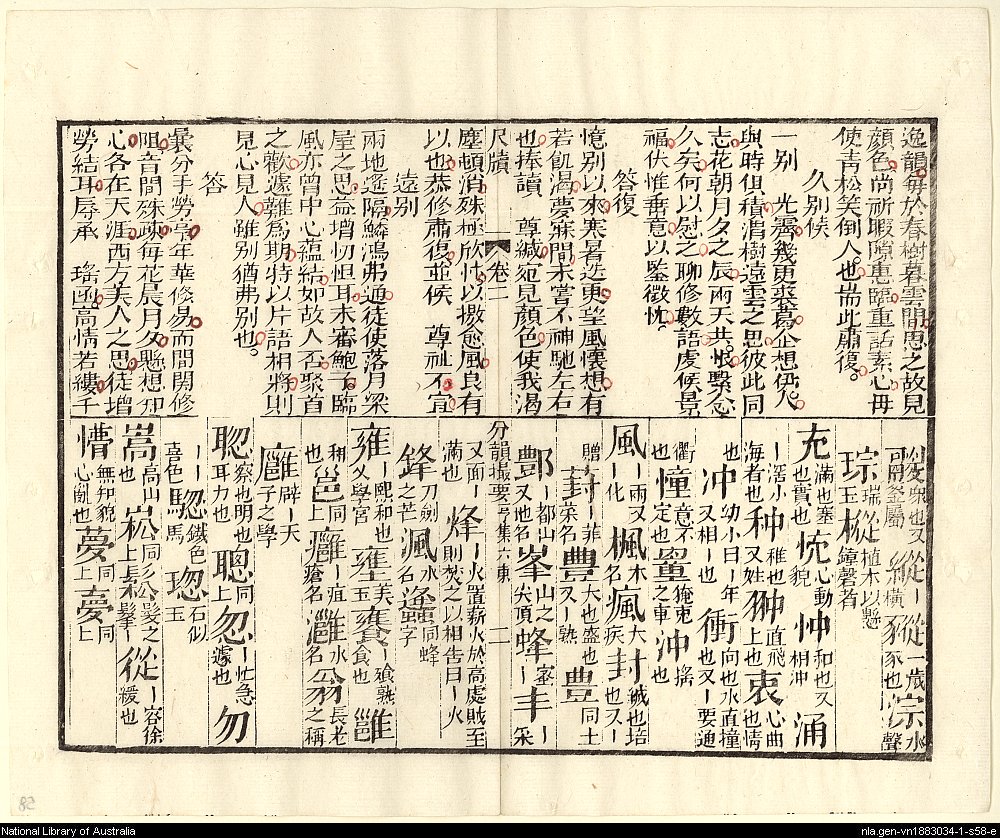 逸韻每於春樹暮雲間思之故見
顏色尚祈暇隙惠臨重話素心毋
使青松笑倒人也耑此肅復
久別候
一別 光霽幾更裘葛企想伊人
與時俱積渭樹遠雲之思彼此同
志花朝月夕之辰兩天共恨繫念
久矣何以慰之聊修數語虔候景
福伏惟垂意以鑒微忱
答復
憶別以來寒暑迭更望風懷想有
若飢渴夢寐間未嘗不神馳左右
也捧讀 尊緘宛見顏色使我渴
尺牘 卷二
塵頓消殊極欣忭以撥愈風良有
以也恭修肅復並候 尊祉不宜
遠別
兩地遙隔鱗鴻弗通徒使落月梁
屋之思益增忉怛耳未審鮑子臨
風亦曾中心蘊結如故人否聚首
之歡遽難為期特以片語相將則
見心見人雖別猶弗別也
答
曩分手勞亭年華倏易而間関修
阻音問殊疎每花晨月夕懸想知
心各在天涯西方美人之思徒增
勞結耳辱承 瑤函高情若縷千
豵 縱 豵一歲豕也 淙水聲
琮瑞玉 樅植木以懸鐘磬者
充滿也塞也實也 忱心動貌 忡和也又相冲 涌
海者也 种稚也又姓 翀直飛上也 衷心曲也情也
冲幼小曰年又相也 衝向也水直撞也又要通衢也
憧意不定也 罿掩兔之車 沖搖也
風兩又化 楓木名 瘋大疾 封城也培也又
贈 葑菲菜名 豐大也盛也又熟 豊同上
酆都山又地名 峯山之尖頂 蜂蜜 丰采
分韻撮要字集 六東 二
又面滿也 烽火置薪火於高處賊至則焚之以相告曰火
鋒刀劍之芒 渢水名 蠭同蜂字
雍熙和也又學宮 壅美玉 饔飧熟食也 雝
和也 邕同上 癰疽瘡名 灉水名 翁長老之稱
廱辟天子之學
聰察也明也耳力也 聰同上 怱忙急遽也 匆
喜色 驄鐵色馬 璁石似玉
嵩高山也 崧同上 鬆髮之鬖 從容徐緩也
懵無知貌心亂也 夢同上 夣同上
National Library of Australia
nla.gen-vn1883034-1-s58-e
58